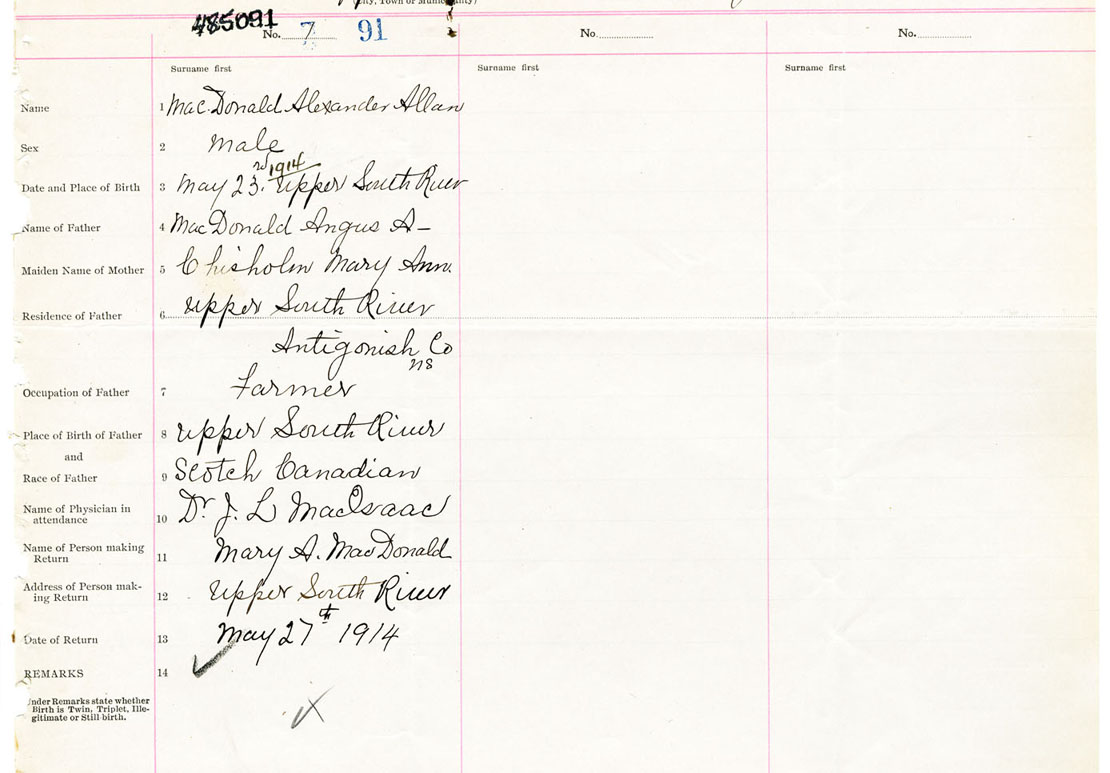 (City, Town or Municipality)
485091
No. 7 91 No. No.
Surname first Surname first Surname first
Name 1 MacDonald Alexander Allan
Sex 2 male
Date and Place of Birth 3 May 23rd 1914 Upper South River
Name of Father 4 MacDonald Angus A-
Maiden Name of Mother 5 Chisholm Mary Ann.
Residence of Father 6 Upper South River
Antigonish Co
NS
Occupation of Father 7 Farmer
Place of Birth of Father 8 Upper South River
and
Race of Father 9 Scotch Canadian
Name of Physician in
attendance 10 Dr J. L MacIsaac
Name of Person making
Return 11 Mary A. MacDonald
Address of Person mak-
ing Return 12 Upper South River
Date of Return 13 May 27th 1914
REMARKS 14
Under Remarks state whether
Birth is Twin, Triplet, Ille-
gitimate or Still-birth.